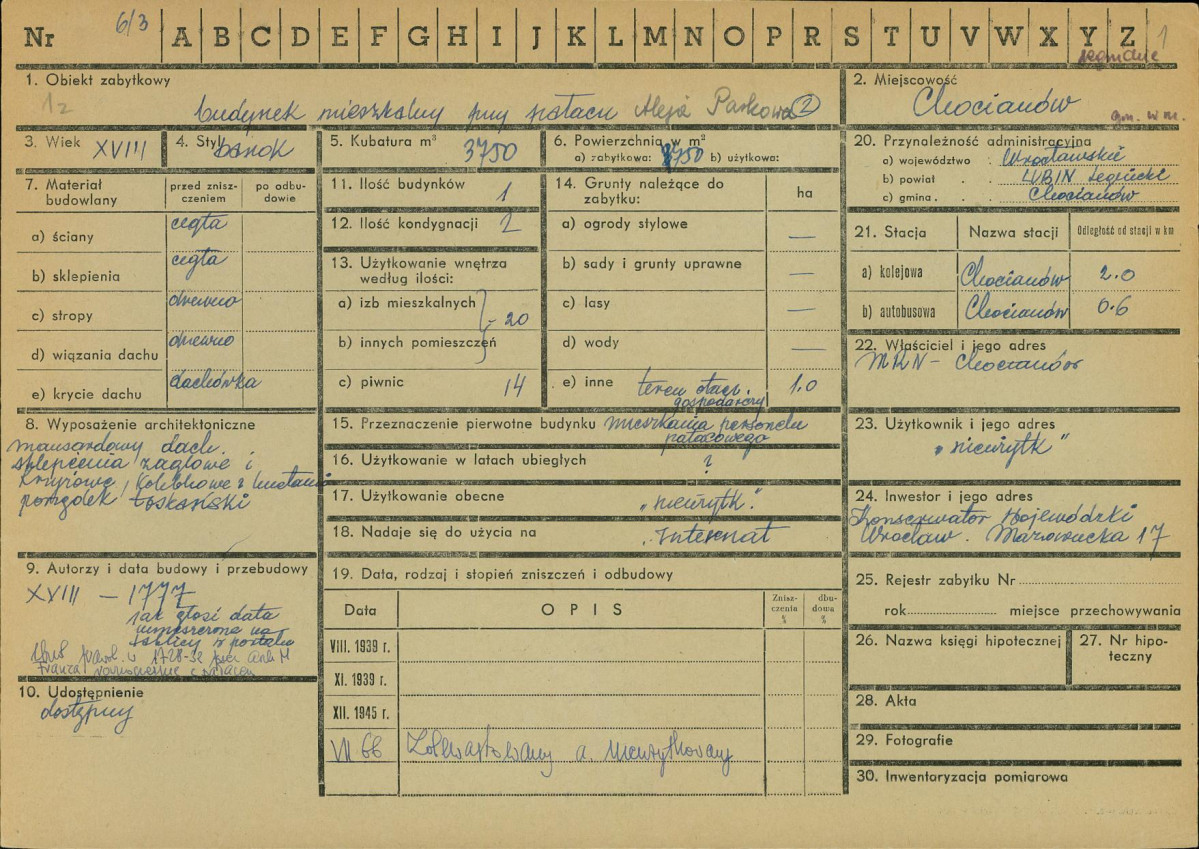 Nr 6/3 A B C D E F G H I J K L M N O P R S T U V W X Y Z 1
1. Obiekt zabytkowy
1z
budynek mieszkalny przy pałacu Aleja Parkowa 2
2. Miejscowość
Chocianów
gm. w m.
3. Wiek XVIII
4. Styl barok
5. Kubatura m³ 3750
6. Powierzchnia w m²
a) zabytkowa: 8750 b) użytkowa:
20. Przynależność administracyjna
a) województwo Wrocławskie
b) powiat LUBIN Legnicki
c) gmina Chocianów
7. Materiał budowlany
przed zniszczeniem
po odbudowie
a) ściany cegła
b) sklepienia cegła
c) stropy drewno
d) wiązania dachu drewno
e) krycie dachu dachówka
11. Ilość budynków 1
12. Ilość kondygnacji 2
13. Użytkowanie wnętrza
według ilości:
a) izb mieszkalnych
- 20
b) innych pomieszczeń
c) piwnic 14
14. Grunty należące do
zabytku:
ha
a) ogrody stylowe —
b) sady i grunty uprawne —
c) lasy —
d) wody —
e) inne teren otacz. 1.0
gospodarczy
21. Stacja Nazwa stacji Odległość od stacji w km
a) kolejowa Chocianów 2.0
b) autobusowa Chocianów 0.6
22. Właściciel i jego adres
MRN - Chocianów
8. Wyposażenie architektoniczne
mansardowy dach.
sklepienia żaglowe i
krzyżowe, kolebkowe z lunetami
porządek toskański
15. Przeznaczenie pierwotne budynku mieszkania personelu
pałacowego
16. Użytkowanie w latach ubiegłych ?
17. Użytkowanie obecne „nieużytk."
18. Nadaje się do użycia na „Internat
23. Użytkownik i jego adres
„nieużytk"
24. Inwestor i jego adres
Konserwator Wojewódzki
Wrocław. Mazowiecka 17
9. Autorzy i data budowy i przebudowy
XVIII - 1777
jak głosi data
umieszczona na
tablicy w portalu
1728-32 przez
Franza równocześnie z pałacem
10. Udostępnienie
dostępny
19. Data, rodzaj i stopień zniszczeń i odbudowy
Data OPIS Zniszczenia % dbudowa %
VIII. 1939 r.
XI. 1939 r.
XII. 1945 r.
VII 66 Zdewastowany a. nieużytkowany
25. Rejestr zabytku Nr
rok miejsce przechowywania
26. Nazwa księgi hipotecznej
27. Nr hipoteczny
28. Akta
29. Fotografie
30. Inwentaryzacja pomiarowa